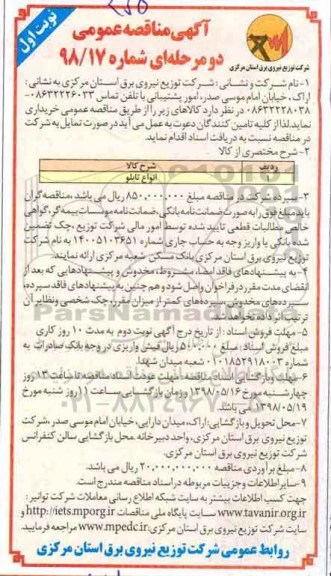 نوبت اول
آگهی مناقصه عمومی
دو مرحله‌ای شماره ۹۸/۱۷
شرکت توزیع نیروی برق استان مرکزی
۱- نام شرکت و نشانی: شرکت توزیع نیروی برق استان مرکزی به نشانی:
اراک، خیابان امام موسی صدر، امور پشتیبانی با تلفن تماس ۰۸۶۳۲۲۲۶۰۲۳-
۰۸۶۳۲۲۲۸۰۳۸ در نظر دارد کالاهای زیر را از طریق مناقصه عمومی خریداری
نماید. لذا از کلیه تامین کنندگان دعوت به عمل می آید در صورت تمایل به شرکت
در مناقصه نسبت به دریافت اسناد اقدام نماید.
۲- شرح مختصری از کالا
ردیف شرح کالا
انواع تابلو
۳- سپرده شرکت در مناقصه مبلغ ۸۵۰,۰۰۰,۰۰۰ ریال می باشد، مناقصه گران
باید مبلغ فوق را به صورت ضمانت نامه بانکی، ضمانت نامه موسسات بیمه گر، گواهی
خالص مطالبات قطعی تایید شده توسط امور مالی شرکت توزیع، چک تضمین
شده بانکی یا واریز وجه به حساب جاری شماره ۱۴۰۰۵۱۰۳۶۵۱ به نام شرکت
توزیع نیروی برق استان مرکزی بانک مسکن شعبه مرکزی ارائه نمایند.
۴- به پیشنهادهای فاقد امضاء، مشروط، مخدوش و پیشنهادهایی که بعد از
انقضای مدت مقرر در فراخوان واصل شود و هم چنین به پیشنهادهای فاقد سپرده،
سپرده‌های مخدوش، سپرده‌های کمتر از میزان مقرر، چک شخصی و نظایر آن
ترتیب اثر داده نخواهد شد.
۵- مهلت فروش اسناد: از تاریخ درج آگهی نوبت دوم به مدت ۱۰ روز کاری
مبلغ فروش اسناد: مبلغ ۵۰۰,۰۰۰ ریال فیش واریزی در وجه بانک صادرات به
شماره ۰۱۰۱۸۵۲۹۱۸۰۰۳ شعبه میدان شهدا.
۶- مهلت و بازگشایی اسناد مناقصه: مهلت عودت اسناد مناقصه تا ساعت ۱۳ روز
چهارشنبه مورخ ۱۳۹۸/۰۵/۱۶ و زمان بازگشایی ساعت ۱۱ روز شنبه مورخ
۱۳۹۸/۰۵/۱۹ می باشد.
۷- محل تحویل و بازگشایی: اراک، میدان دارایی، خیابان امام موسی صدر، شرکت
توزیع نیروی برق استان مرکزی، واحد دبیرخانه. محل بازگشایی سالن کنفرانس
شرکت توزیع نیروی برق استان مرکزی.
۸- مبلغ برآوردی مناقصه ۲۰,۰۰۰,۰۰۰,۰۰۰ ریال می باشد.
۹- سایر اطلاعات و جزییات مربوطه در اسناد مناقصه مندرج است.
جهت کسب اطلاعات بیشتر به سایت شبکه اطلاع رسانی معاملات شرکت توانیر:
www.tavanir.org.ir سایت پایگاه ملی مناقصات http://iets.mporg.ir و
سایت شرکت توزیع نیروی برق استان مرکزی www.mpedc.ir مراجعه فرمایید.
روابط عمومی شرکت توزیع نیروی برق استان مرکزی